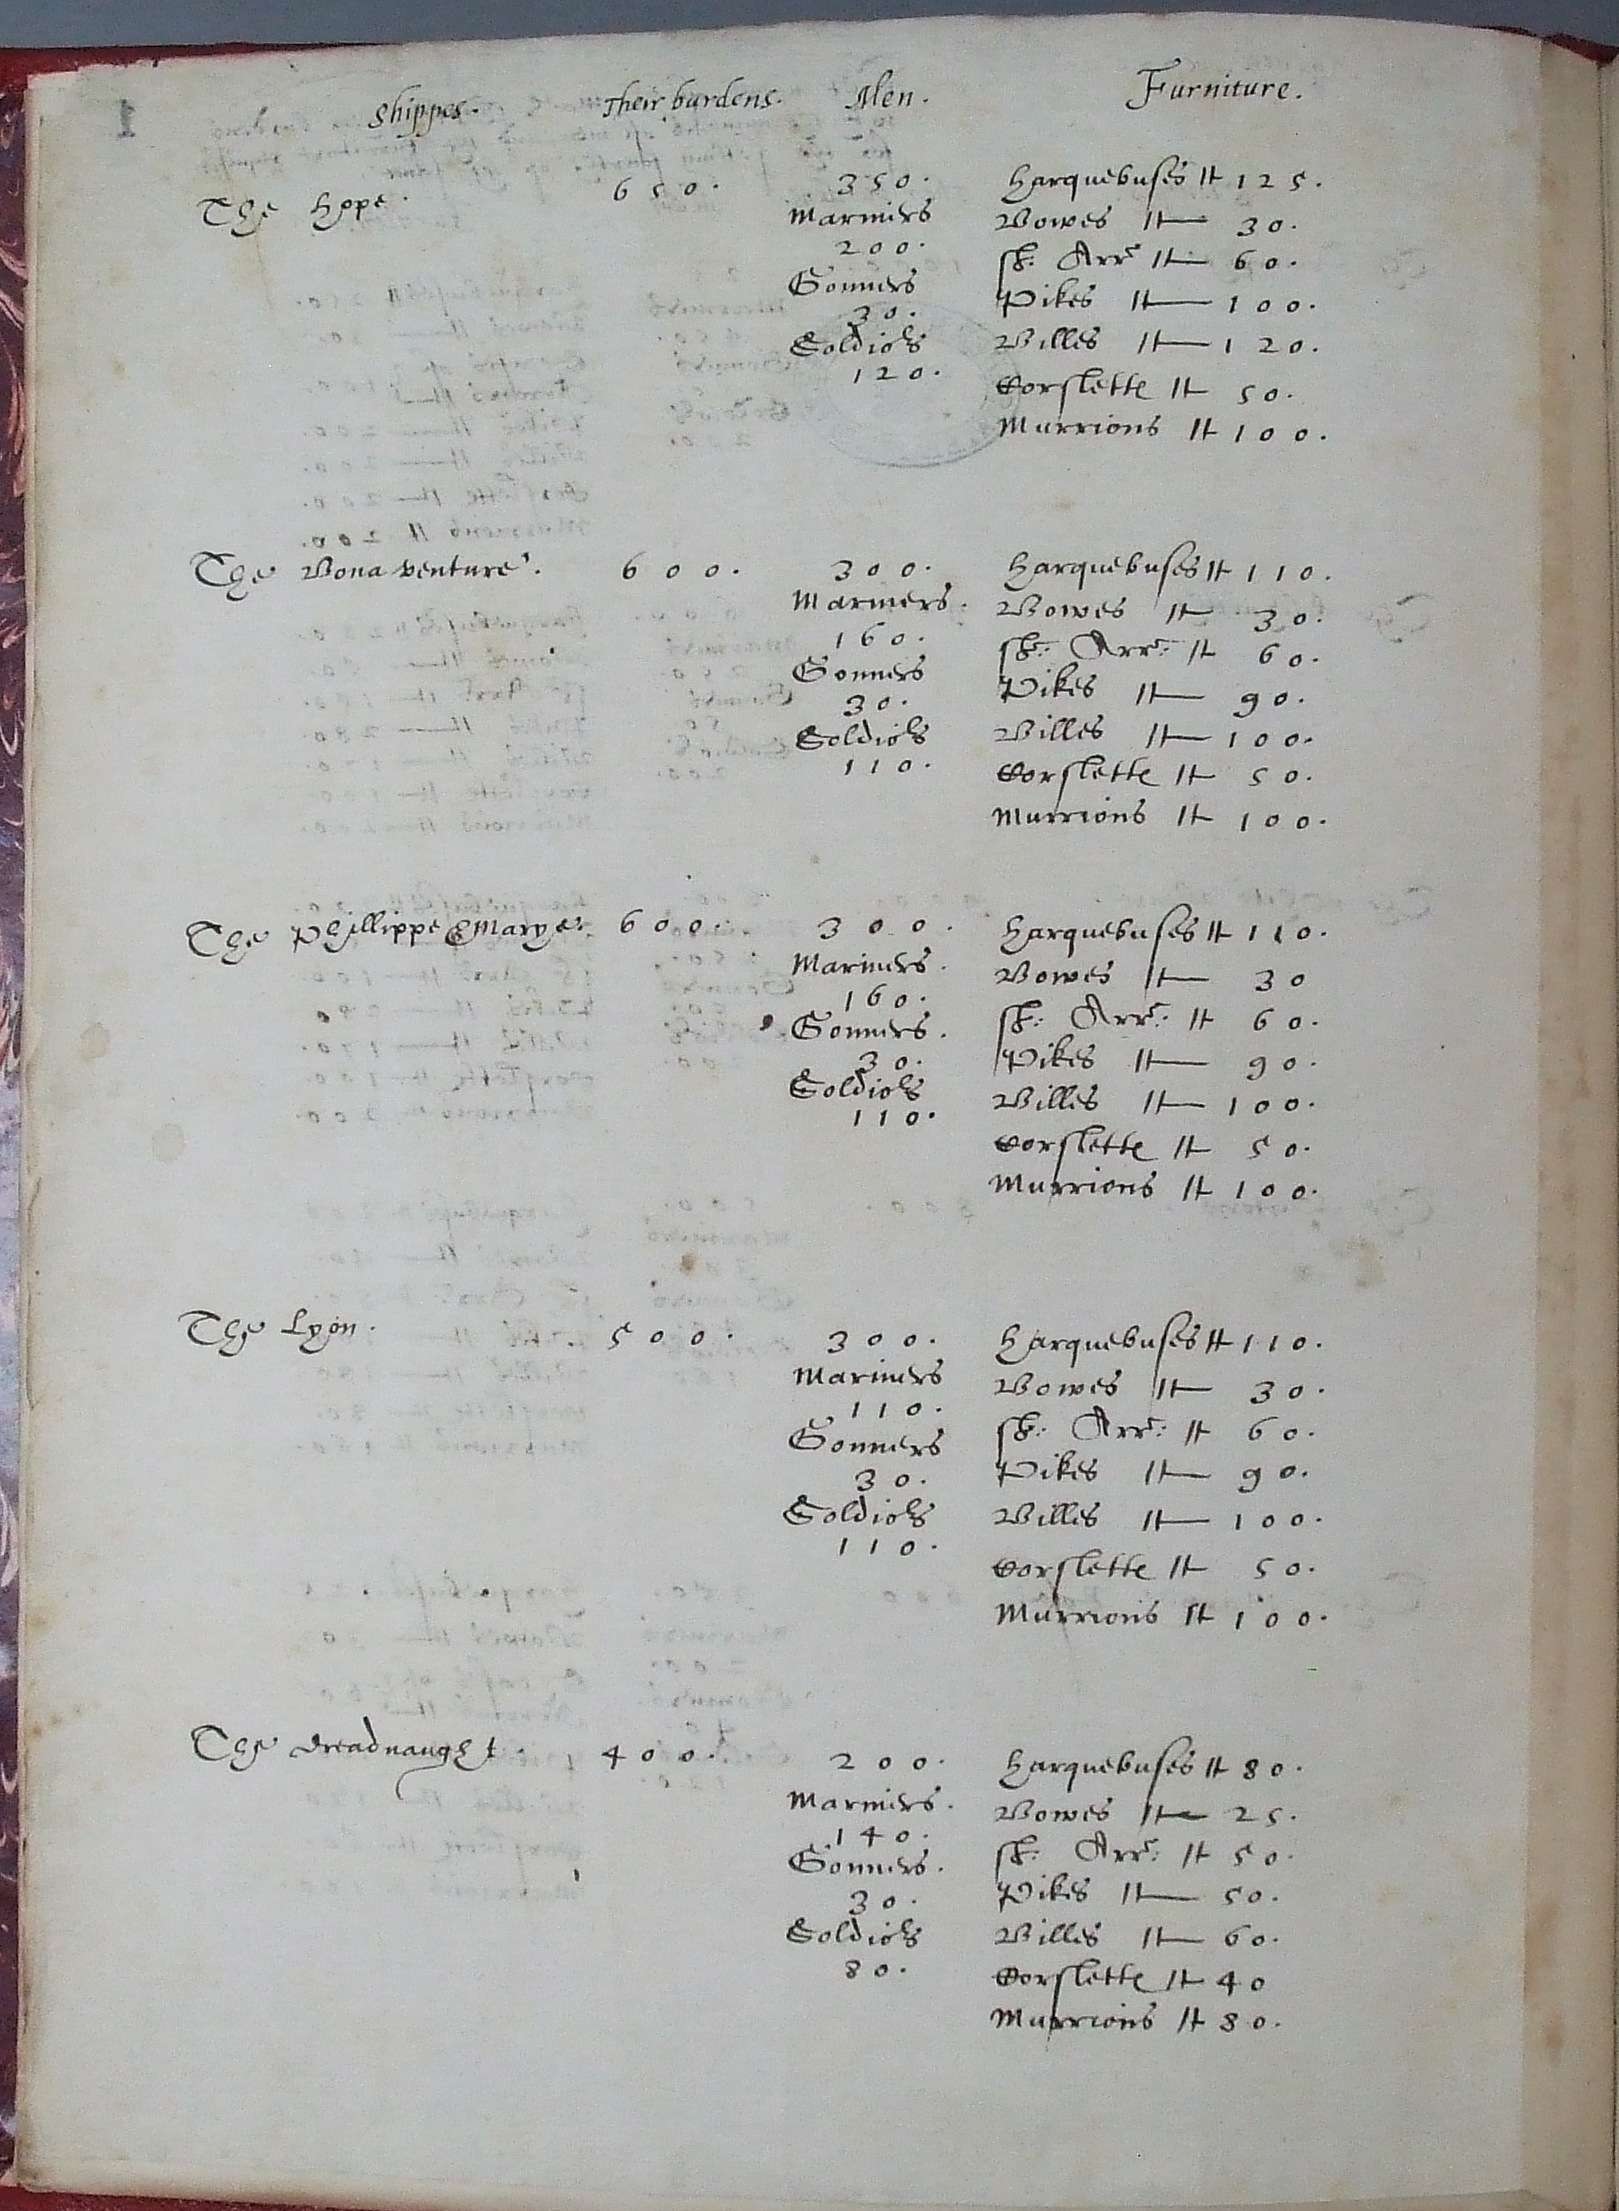 Shippes. Their burdens. Men. Furniture.
The Hope. 650. 350. Harquebusses 125.
Marriners Bowes 30.
200. sh: Arr: 60.
Gonners Pikes 100.
30. Billes 120.
Soldiors Corslette 50.
120. Murrions 100.
The Bonaventure. 600. 300. Harquebusses 110.
Marriners. Bowes 30.
160. sh: Arr: 60.
Gonners Pikes 90.
30. Billes 100.
Soldiors Corslette 50.
110. Murrions 100.
The Phillippe & Marye. 600. 300. Harquebusses 110.
Marriners. Bowes 30
160. sh: Arr: 60.
Gonners. Pikes 90.
30. Billes 100.
Soldiors Corslette 50.
110. Murrions 100.
The Lyon. 500. 300. Harquebusses 110.
Marriners Bowes 30.
110. sh: Arr: 60.
Gonners Pikes 90.
30. Billes 100.
Soldiors Corslette 50.
110. Murrions 100.
The dreadnaught. 400. 200. Harquebusses 80.
Marriners. Bowes 25.
140. sh: Arr: 50.
Gonners. Pikes 50.
30. Billes 60.
Soldiors Corslette 40
80. Murrions 80.